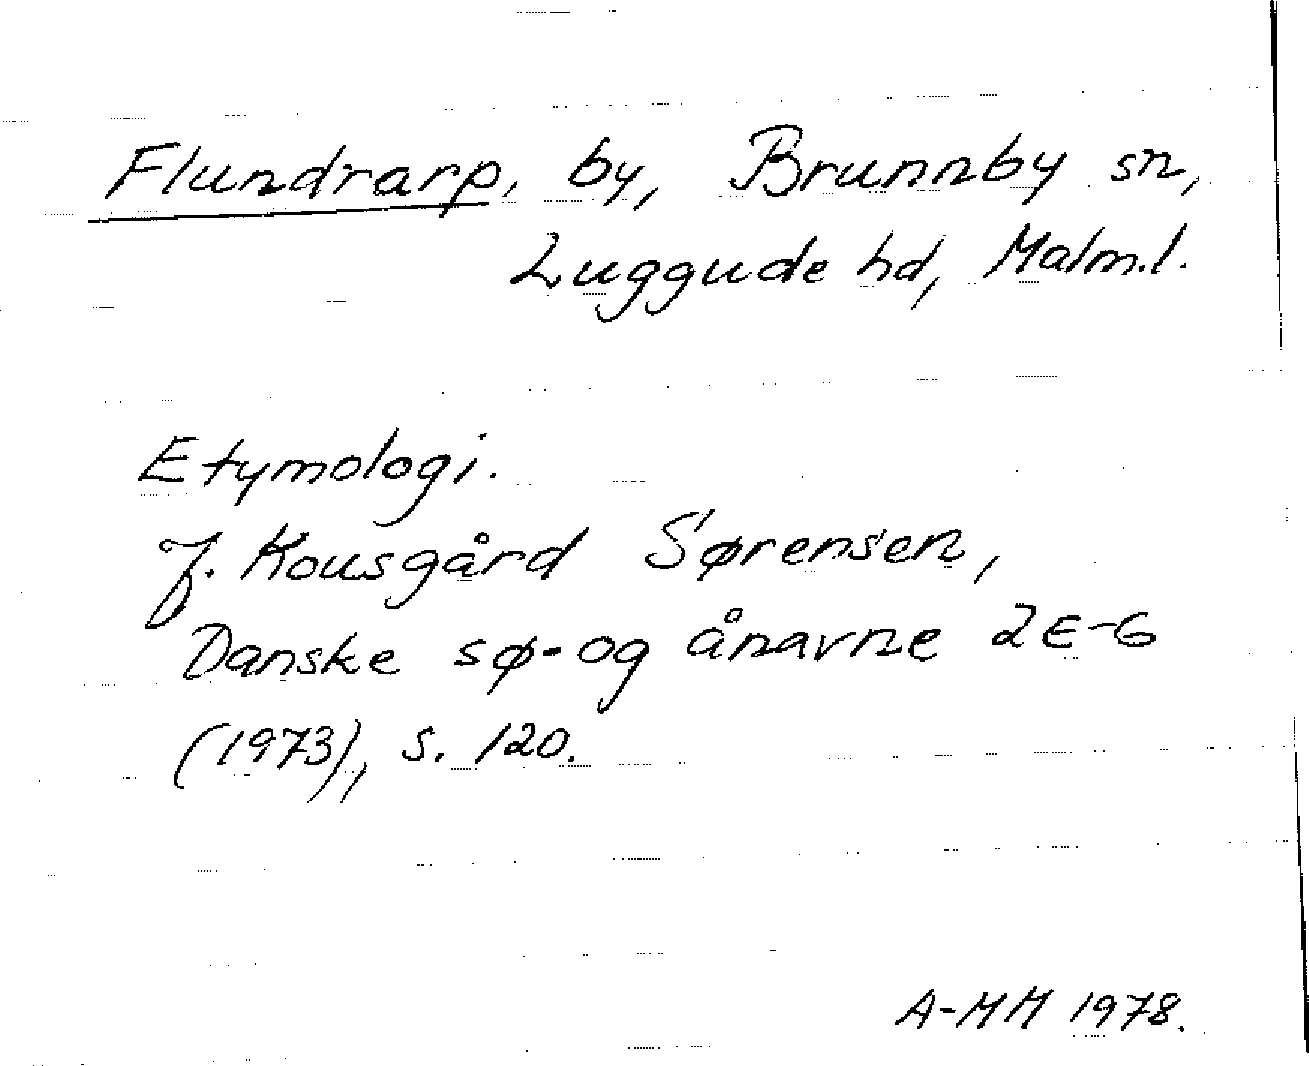 Flundrarp, by, Brunnby sn,
Luggude hd, Malm.l.
Etymologi.
J. Kousgård Sørensen,
Danske sø- og ånavne 2E-G
(1973), s. 120.
A-MM 1978.